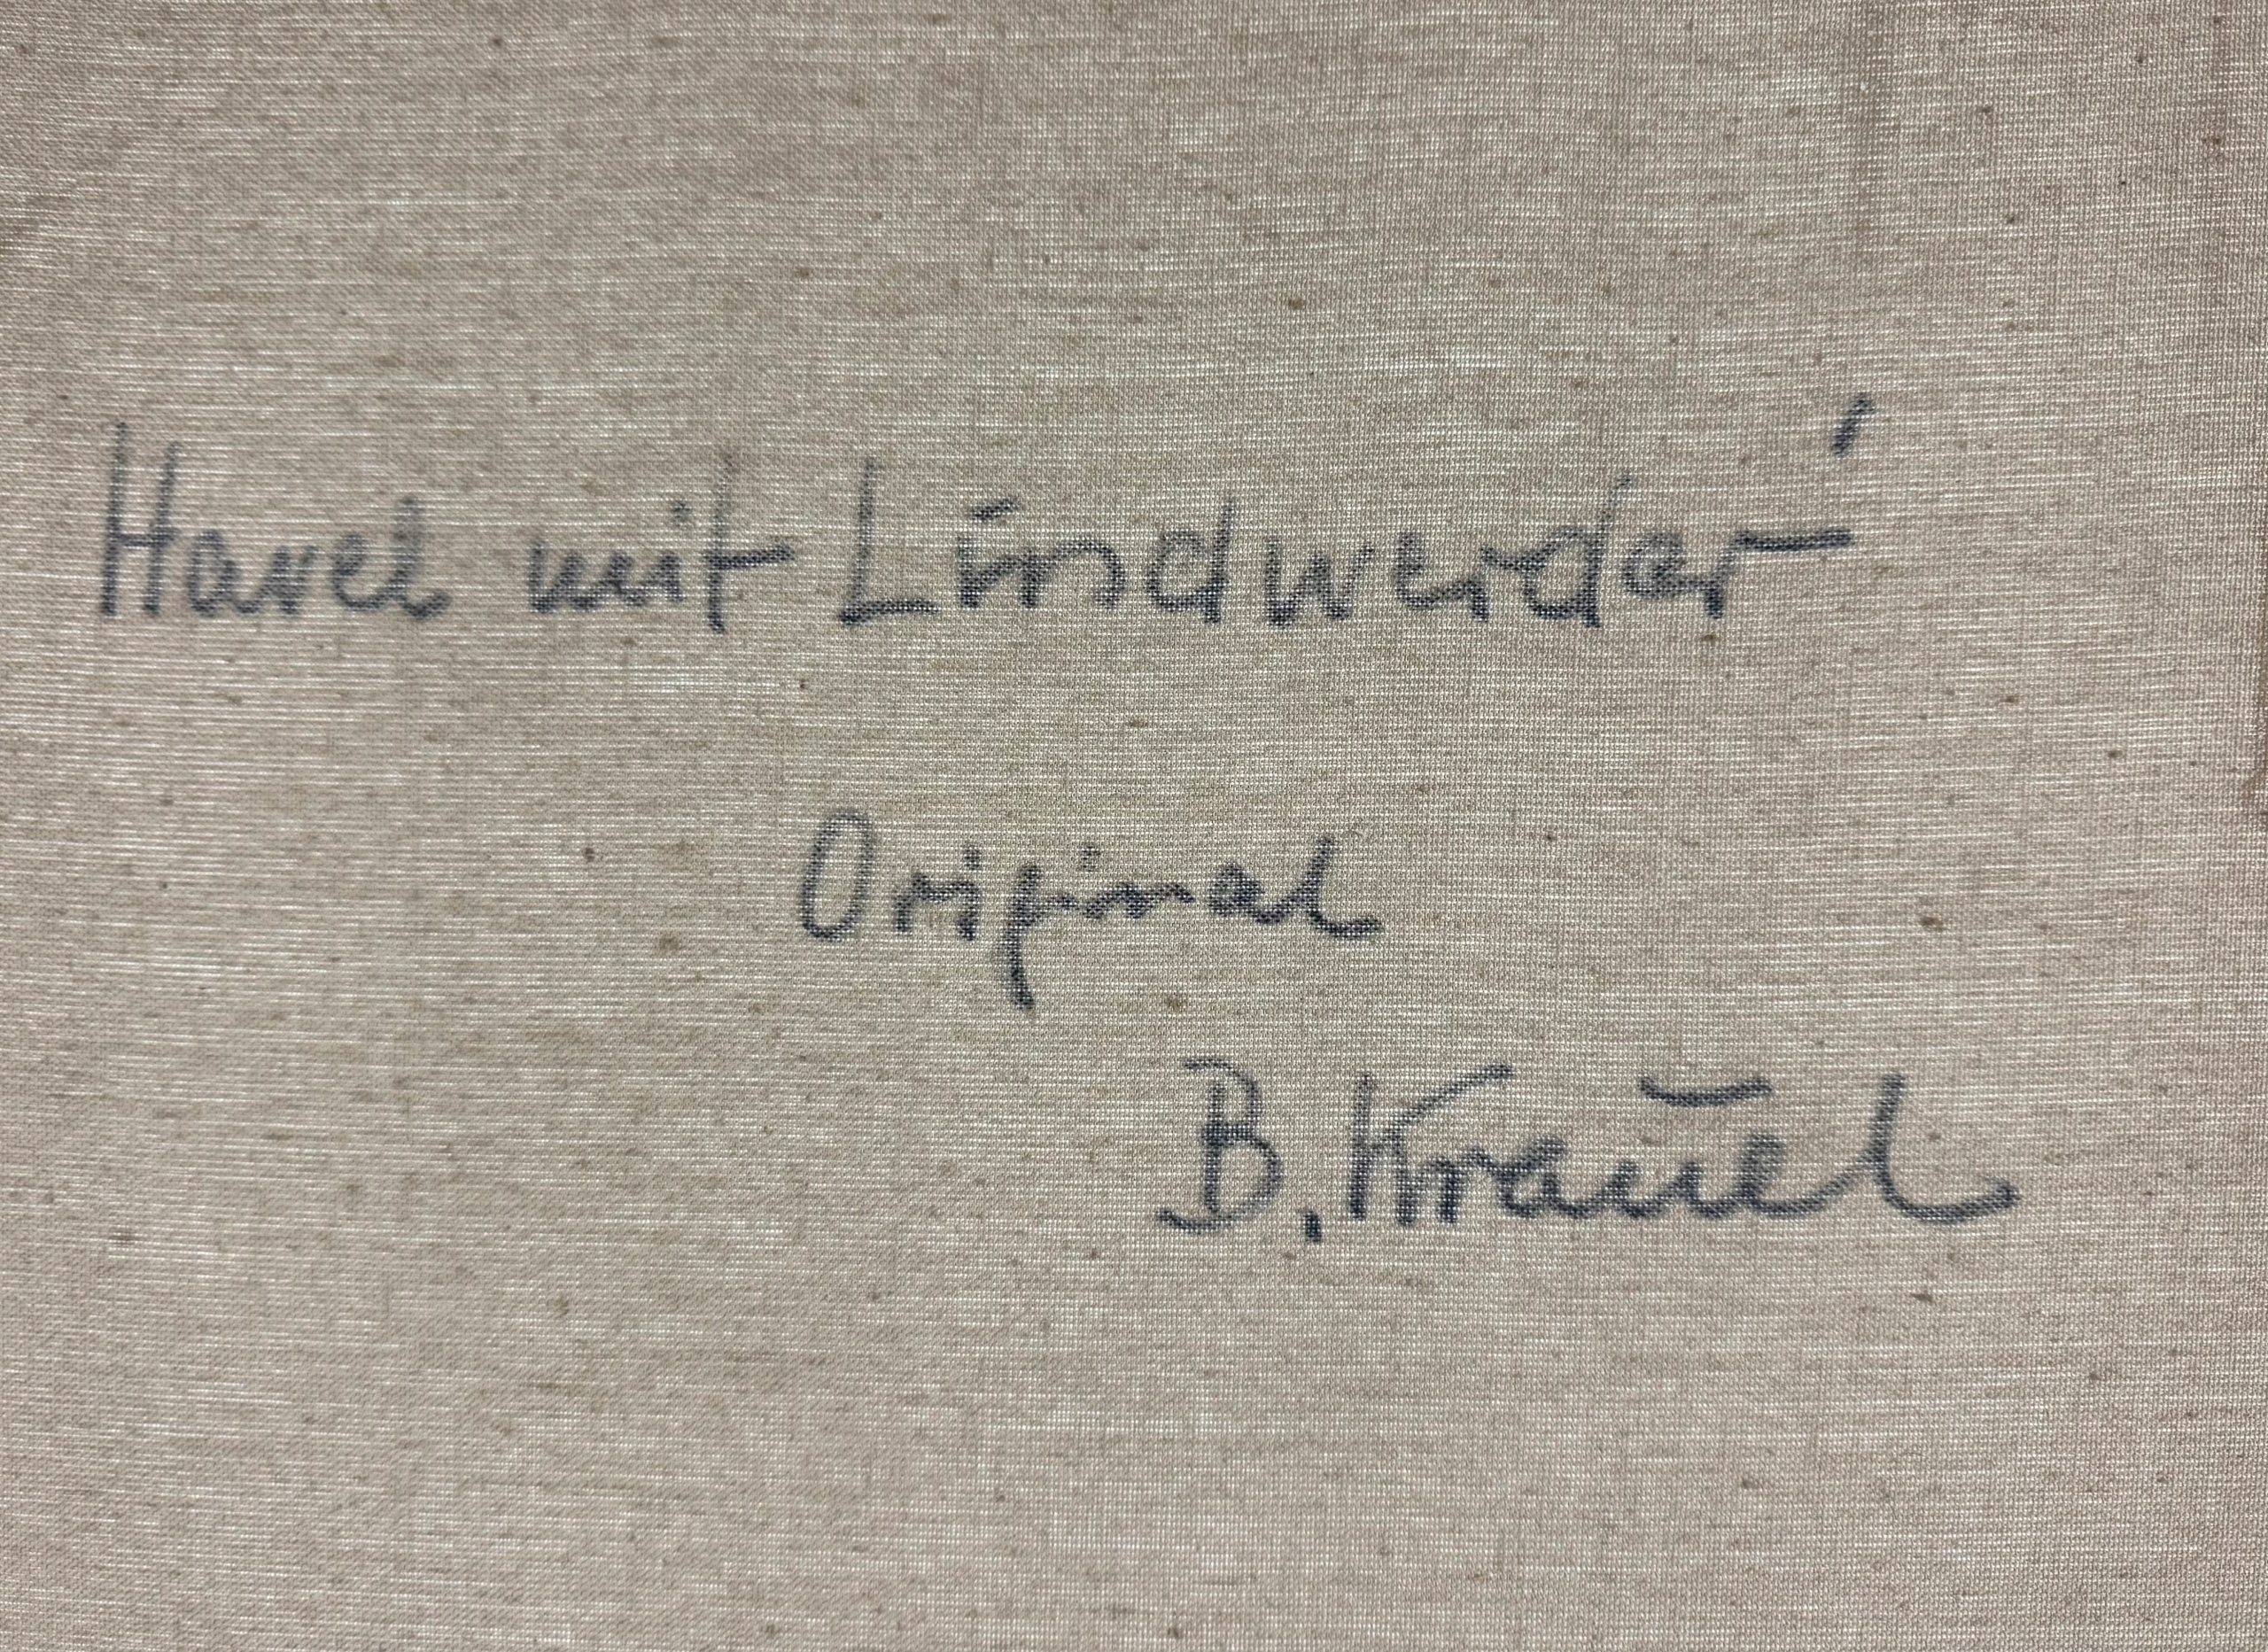 Havel mit Lindwerder'
Original
B. Kraŭel